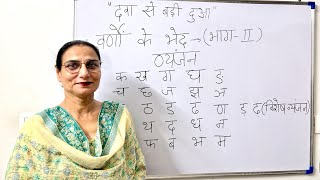 "दवा से बड़ी दुआ"
वर्णों के भेद → (भाग-II)
व्यंजन
क ख ग घ ङ
च छ ज झ ञ
ठ ड ढ ण ड़ ढ़ (विशेष व्यंजन)
थ द ध न
फ ब भ म